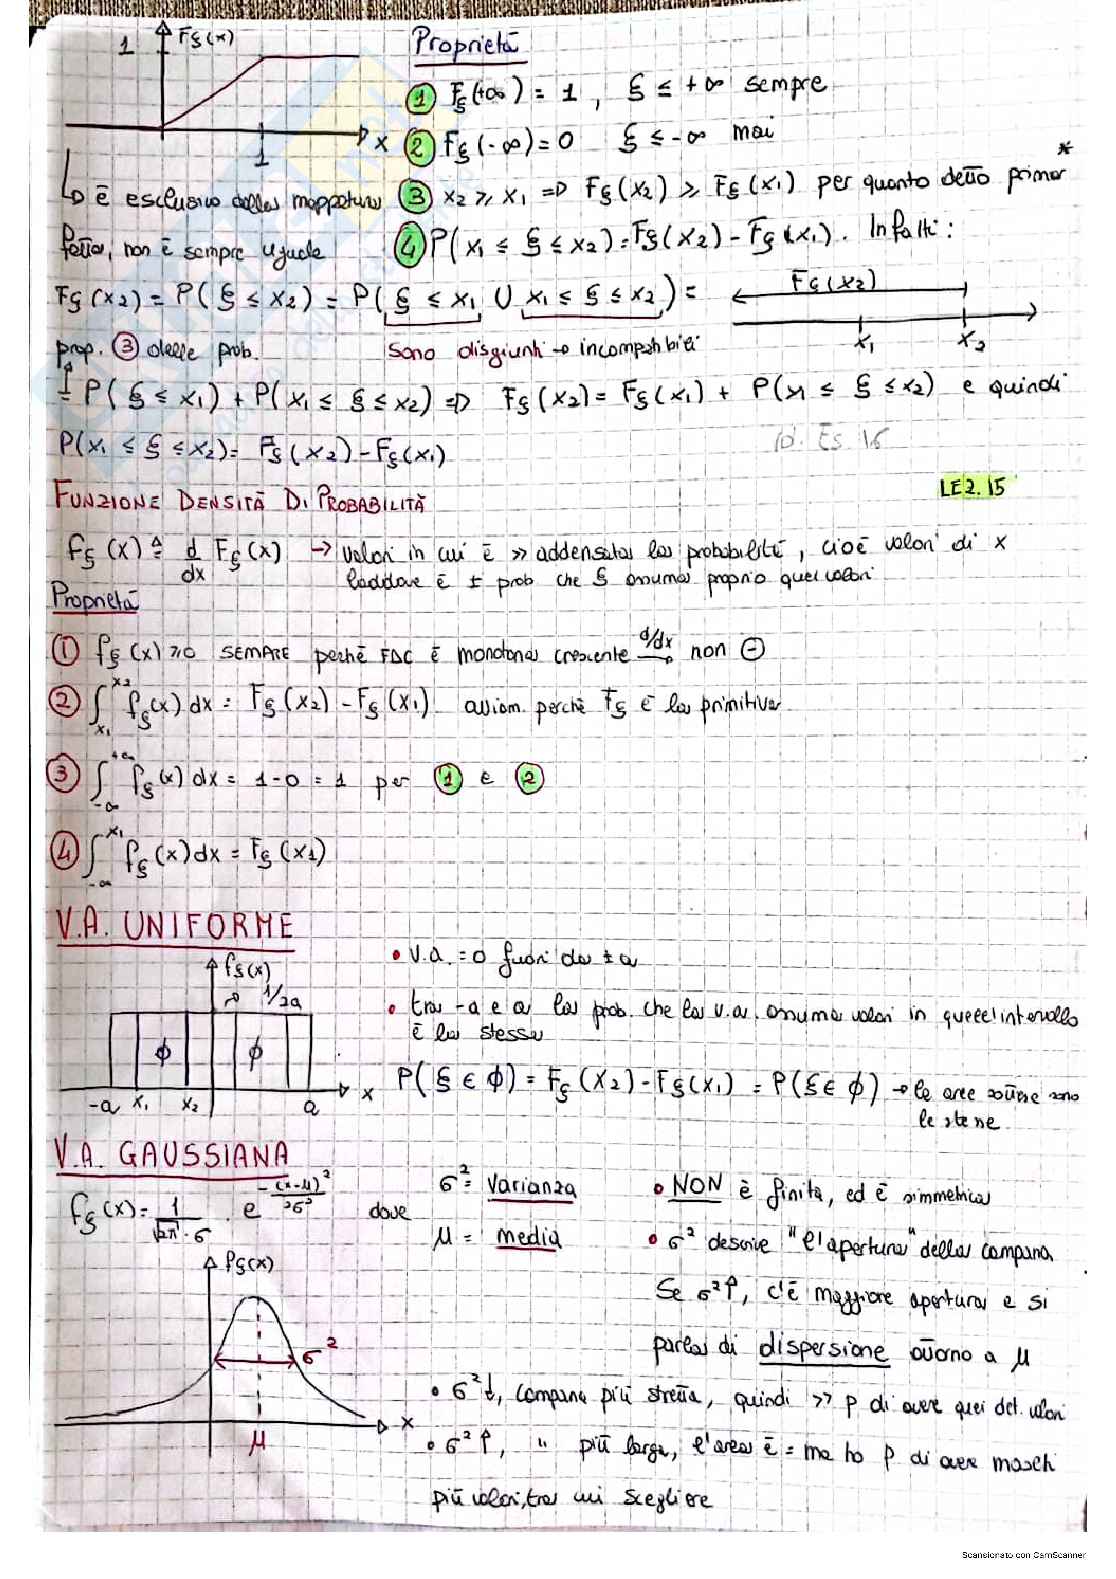 1 Fξ(x)
x
1
Proprietà
① Fξ(+∞) = 1 , ξ ≤ +∞ sempre
② Fξ(-∞) = 0 ξ ≤ -∞ mai
③ x₂ ⩾ x₁ => Fξ(x₂) ⩾ Fξ(x₁) per quanto detto prima *
④ P(x₁ ≤ ξ ≤ x₂) = Fξ(x₂) - Fξ(x₁). Infatti:
↳ è esclusivo della mappatura
fatta, non è sempre uguale
Fξ(x₂) = P(ξ ≤ x₂) = P(ξ ≤ x₁ ∪ x₁ ≤ ξ ≤ x₂) =
Fξ(x₂)
x₁ x₂
prop. ③ delle prob. sono disgiunti → incompatibili
= P(ξ ≤ x₁) + P(x₁ ≤ ξ ≤ x₂) => Fξ(x₂) = Fξ(x₁) + P(x₁ ≤ ξ ≤ x₂) e quindi
P(x₁ ≤ ξ ≤ x₂) = Fξ(x₂) - Fξ(x₁)
Es 16
FUNZIONE DENSITÀ DI PROBABILITÀ
LEZ. 15
fξ(x) ≜ d/dx Fξ(x) → valori in cui è >> addensata la probabilità, cioè valori di x
laddove è + prob che ξ assuma proprio quei valori
Proprietà
① fξ(x) ⩾ 0 SEMPRE perché FDC è monotona crescente d/dx → non ⊖
② ∫ₓ₁ˣ² fξ(x) dx = Fξ(x₂) - Fξ(x₁) perchè Fξ è la primitiva
③ ∫₋∞⁺∞ fξ(x) dx = 1-0 = 1 per ① e ②
④ ∫₋∞ˣ¹ fξ(x) dx = Fξ(x₁)
V.A. UNIFORME
fξ(x)
→ 1/2a
ϕ ϕ
-a x₁ x₂ a x
• V.a. = 0 fuori da ± a
• tra -a e a la prob. che la v.a. assuma valori in quell'intervallo
è la stessa
P(ξ ∈ ϕ) = Fξ(x₂) - Fξ(x₁) = P(ξ ∈ ϕ) → le aree sottese sono
le stesse
V.A. GAUSSIANA
fξ(x) = 1/(√2π · σ) · e^(-(x-μ)²/2σ²) dove
σ² = varianza
μ = media
• NON è finita, ed è simmetrica
• σ² descrive "l'apertura" della campana
Se σ²↑, c'è maggiore apertura e si
parla di dispersione attorno a μ
fξ(x)
σ²
μ
x
• σ²↓, campana più stretta, quindi >> p di avere quei det. valori
• σ²↑, " più larga, l'area è = ma ho p di avere molti
più valori, tra cui scegliere
Scansionato con CamScanner